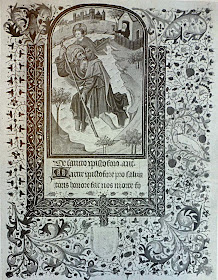 De sancto xpistoforo ant.
Martir xpistofore pro salua
toris honore fac nos mente fo